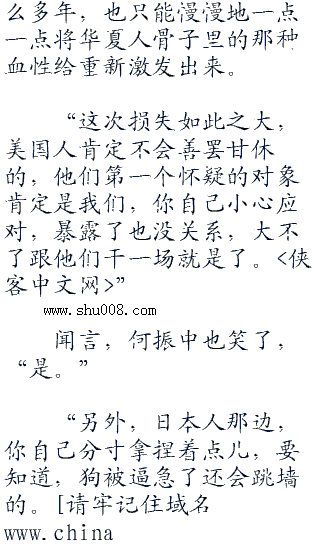 么多年，也只能慢慢地一点
一点将华夏人骨子里的那种
血性给重新激发出来。
“这次损失如此之大，
美国人肯定不会善罢甘休
的，他们第一个怀疑的对象
肯定是我们，你自己小心应
对，暴露了也没关系，大不
了跟他们干一场就是了。<侠
客中文网>”
www.shu008.com
闻言，何振中也笑了，
“是。”
“另外，日本人那边，
你自己分寸拿捏着点儿，要
知道，狗被逼急了还会跳墙
的。[请牢记住域名
www.china